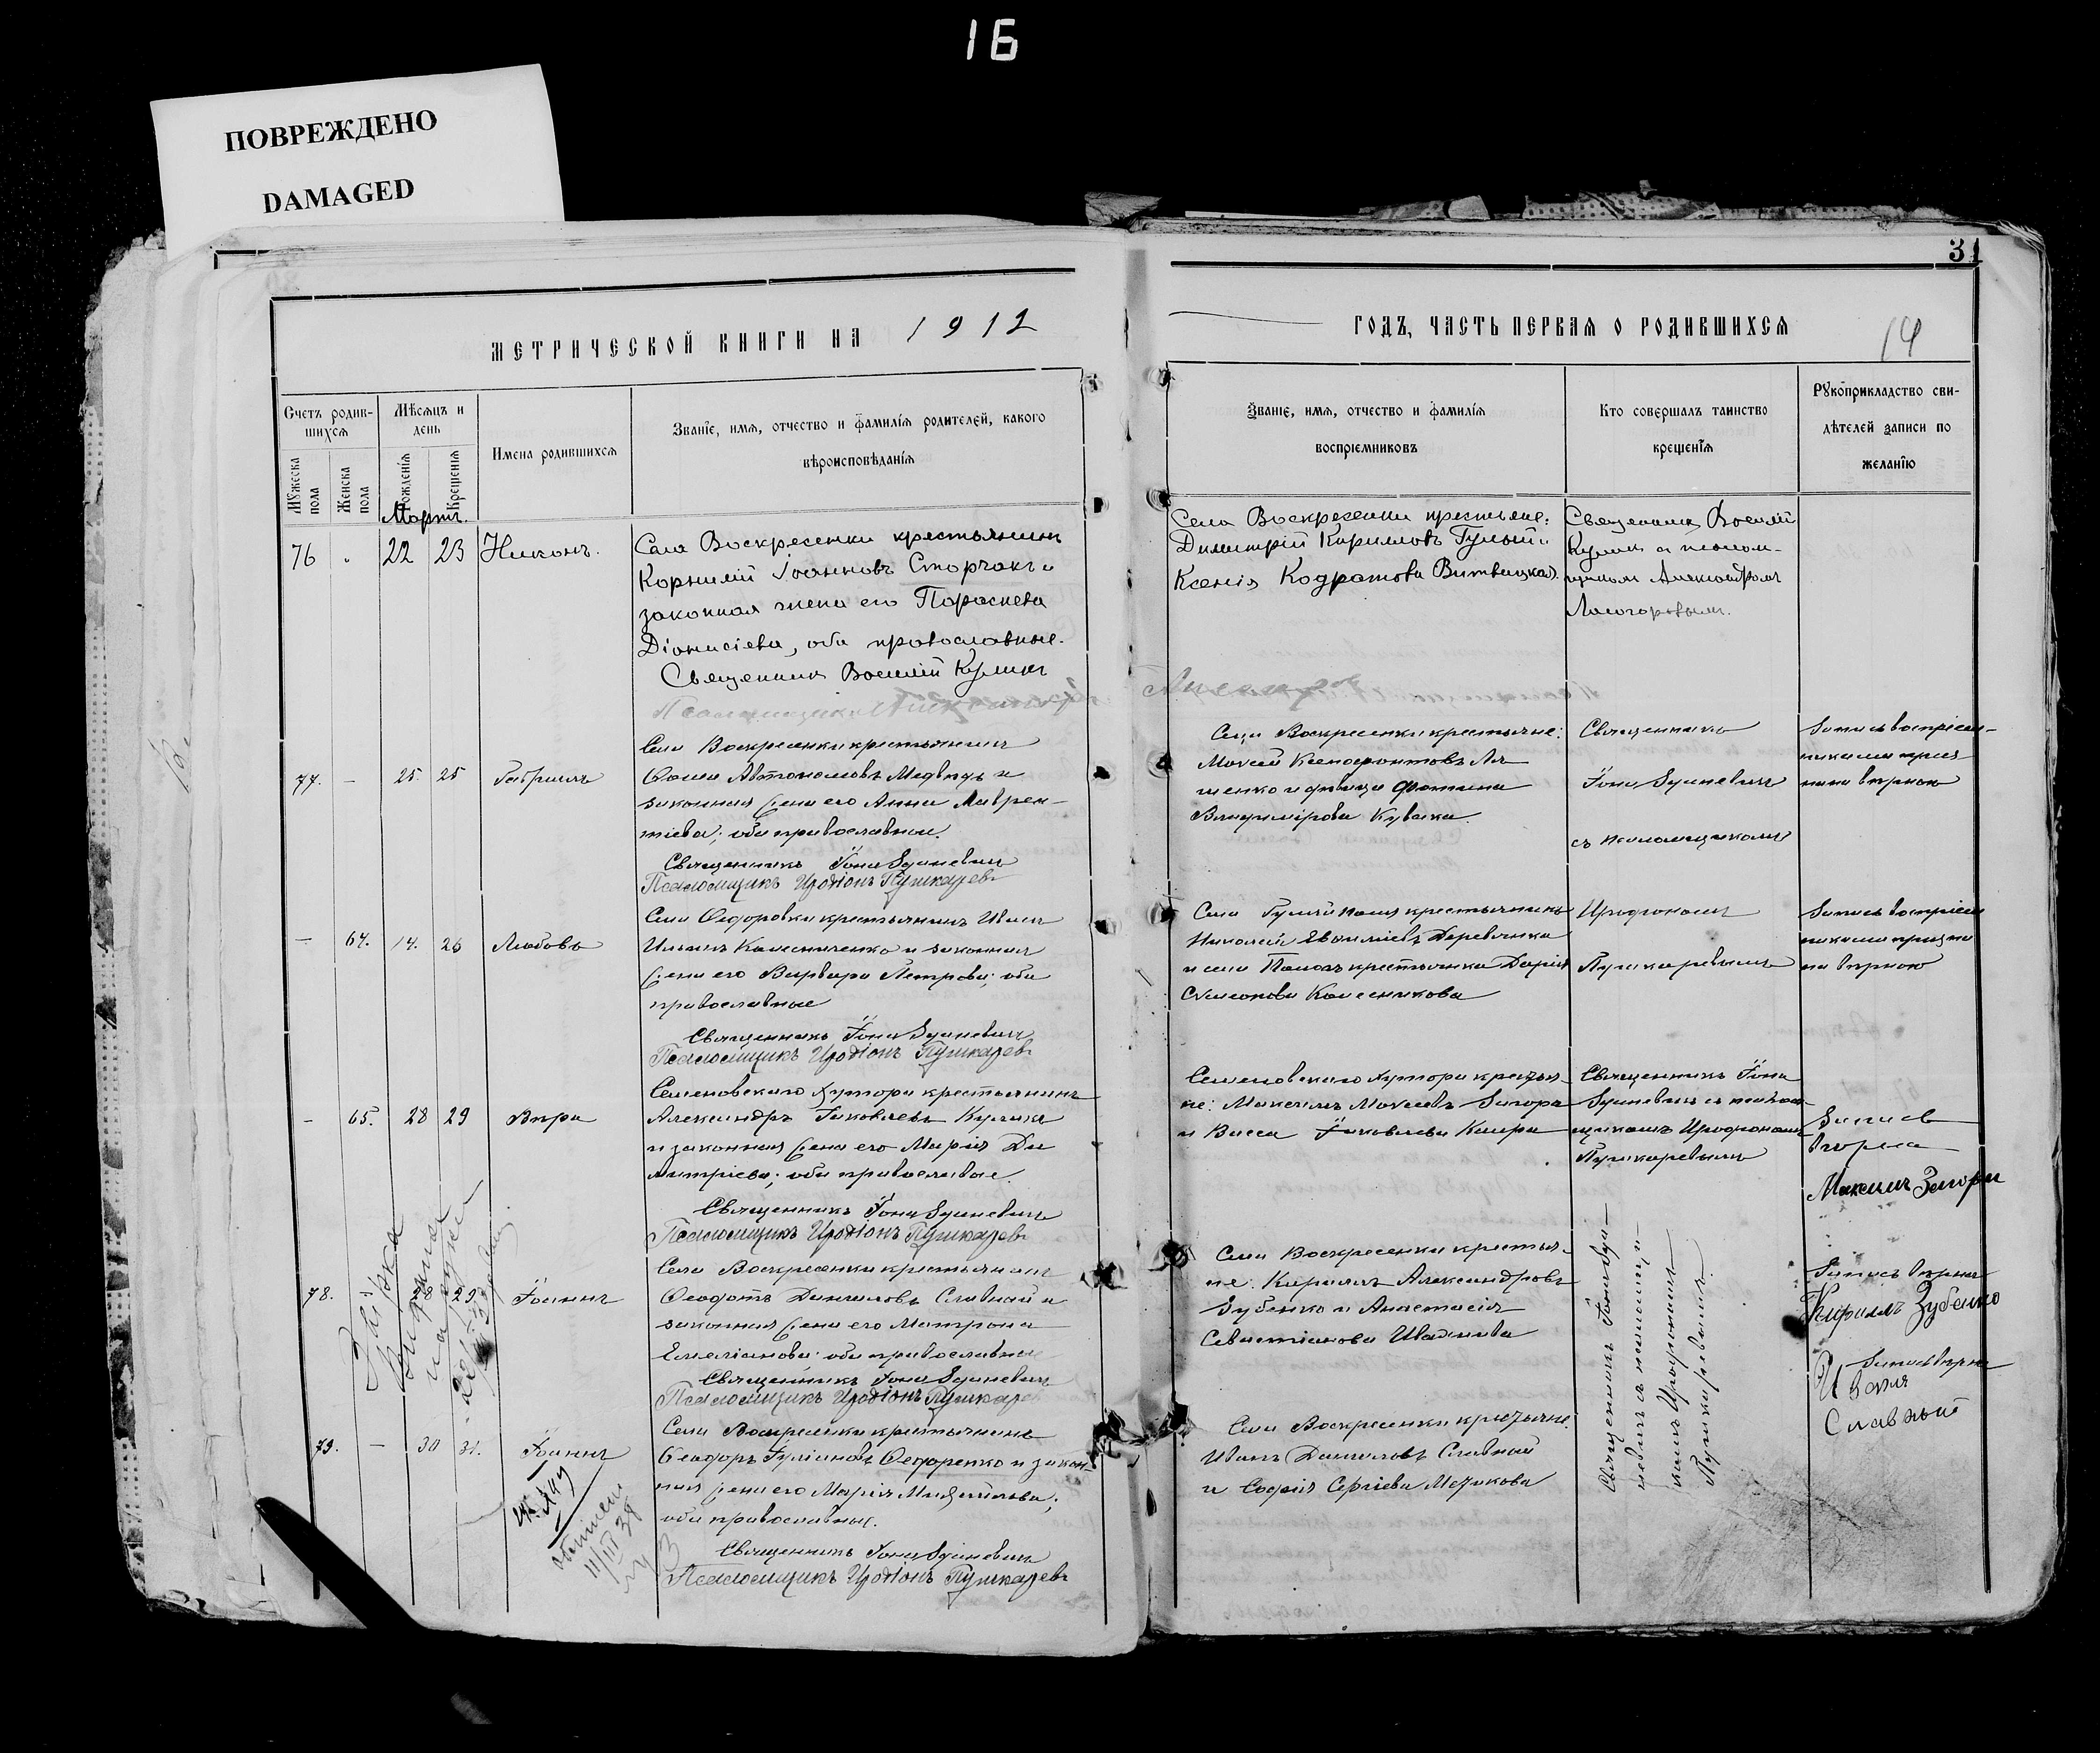 16
ПОВРЕЖДЕНО
DAMAGED
31
МЕТРИЧЕСКОЙ КНИГИ НА 1912
ГОДЪ, ЧАСТЬ ПЕРВАЯ О РОДИВШИХСЯ
14
Счетъ родив-
шихся
Мѣсяцъ и
день
Мужеска
пола
Женска
пола
Рожденія
Крещенія
Имена родившихся
Званіе, имя, отчество и фамилія родителей, какого
вѣроисповѣданія
Званіе, имя, отчество и фамилія
воспріемниковъ
Кто совершалъ таинство
крещенія
Рукоприкладство сви-
дѣтелей записи по
желанію
Мартъ.
76 22 23 Никонъ.
Села Воскресенки крестьянинъ
Корнилій Іоанновъ Сторчакъ и
законная жена его Параскева
Діонисіева, оба православные.
Священникъ Василій Куликъ
Села Воскресенки крестьяне:
Димитрій Кирилловъ Гулый и
Ксенія Кодратова Витвицкая.
Священникъ Василій
Куликъ съ псалом-
щикомъ Александромъ
77. - 25. 25 Гавріилъ
Села Воскресенки крестьянинъ
Ѳома Автономовъ Медвѣдь и
законная жена его Анна Лаврен-
тіева; оба православные
Священникъ Іона Буяневичъ
Псаломщикъ Иродіонъ Пушкаревъ
Села Воскресенки крестьяне:
Моисей Ксенофонтовъ Ля
шенко и дѣвица Фотина
Владимірова Кувака.
Священникъ
Іона Буяневичъ
съ псаломщикомъ
Иродіономъ
Пушкаревымъ
Запись воспріем-
никами приз-
нана вѣрною
- 64. 14. 26 Любовь
Села Ѳедоровки крестьянинъ Иванъ
Ильинъ Калениченко и законная
жена его Варвара Петрова; оба
православные
Священникъ Іона Буяневичъ
Псаломщикъ Иродіонъ Пушкаревъ
Села Гуляй поля крестьянинъ
Николай Деревянка
и села Пологъ крестьянка Дарія
Симеонова Колесникова
Запись воспріем
никами призна
на вѣрною
- 65. 28 29 Вѣра
Семеновскаго хутора крестьянинъ
Александръ Іаковлевъ Куликъ
и законная жена его Марія Ди
митріева; оба православные.
Священникъ Іона Буяневичъ
Псаломщикъ Иродіонъ Пушкаревъ
Семеновскаго хутора крестья-
не: Максимъ Моисеевъ Загора
и Васса Іаковлева
Священникъ Іона
Буяневичъ съ псалом-
щикомъ Иродіономъ
Пушкаревымъ
Запись
вѣрна
Максимъ Загора
78. 28 29 Іоаннъ
Села Воскресенки крестьянинъ
Ѳеодотъ Данииловъ Славный и
законная жена его Матрона
Емеліанова; оба православные
Священникъ Іона Буяневичъ
Псаломщикъ Иродіонъ Пушкарев
Села Воскресенки крестья-
не: Кириллъ Александровъ
Зубенко и Анастасія
Севастіанова
Запись вѣрна
Кириллъ Зубенко
Священникъ Іона Буя-
невичъ съ псаломщи-
комъ Иродіономъ
Пушкаревымъ.
79. - 30 31. Іоаннъ
Села Воскресенки крестьянинъ
Ѳеодоръ Іуліановъ Ѳедоренко и закон-
ная жена его Марія Михайлова;
оба православные.
Священникъ Іона Буяневичъ
Псаломщикъ Иродіонъ Пушкаревъ
Села Воскресенки крестьяне:
Иванъ Данииловъ Славный
и Софія Сергіева Мечикова
Запись вѣрна
Иванъ
Славный
11/III 38